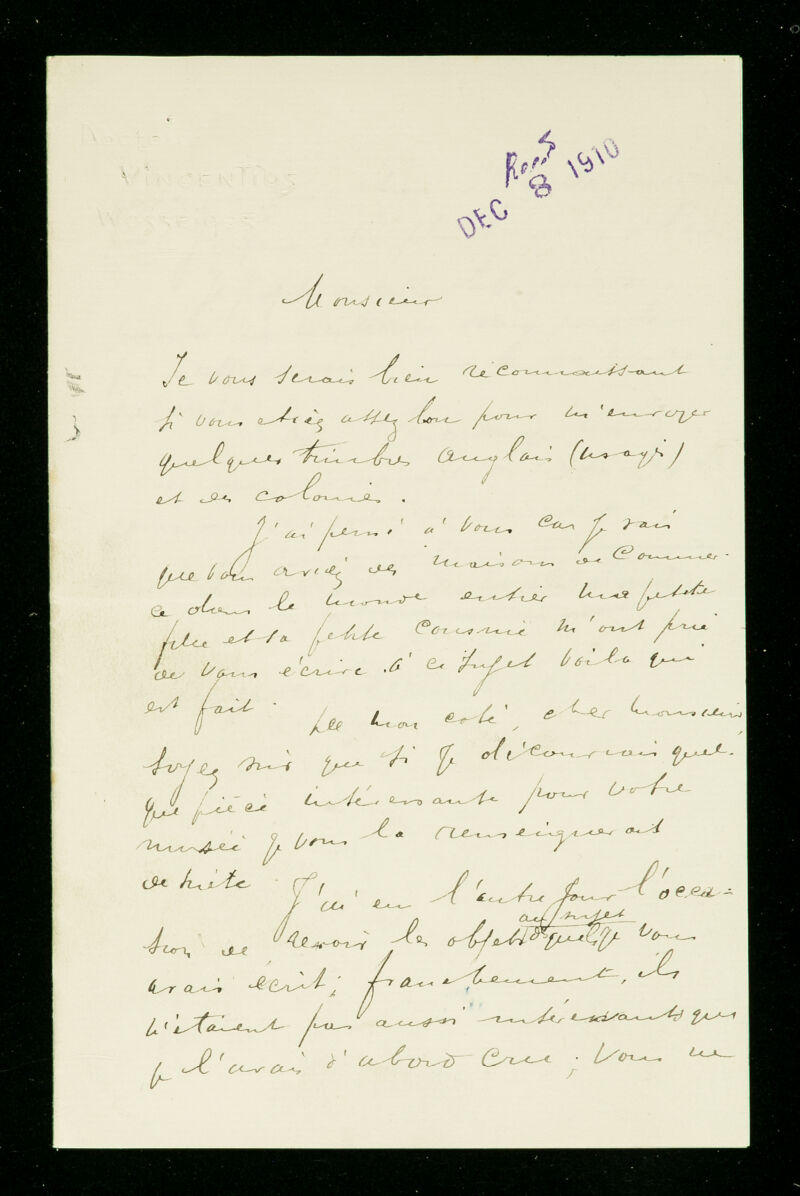 VINCENT
Recd
DEC 8 1910
Monsieur
Je vous serais bien reconnaissant
si vous etiez assez bon pour m'envoyer
quelques timbres anglais (usagés)
et des colonies.
J'ai pensé à vous car je sais
que vous aviez des maisons de Commer-
ce dans le monde entier Ma petite
fille et sa petite cousine m'ont prié
de vous écrire à ce sujet Voila qui
est fait.
De mon coté, cher Monsieur
soyez sûr que si je découvrais quel-
que pièce intéressante pour votre
musée je vous la renseignerait
de suite.
J'ai eu l'autre jour l'occa=
sion de revoir les objets au sujet desquels je vous
avais écrit; franchement, ils
n'étaient pas aussi intéressants que
je l'avais d'abord cru; Vous ne